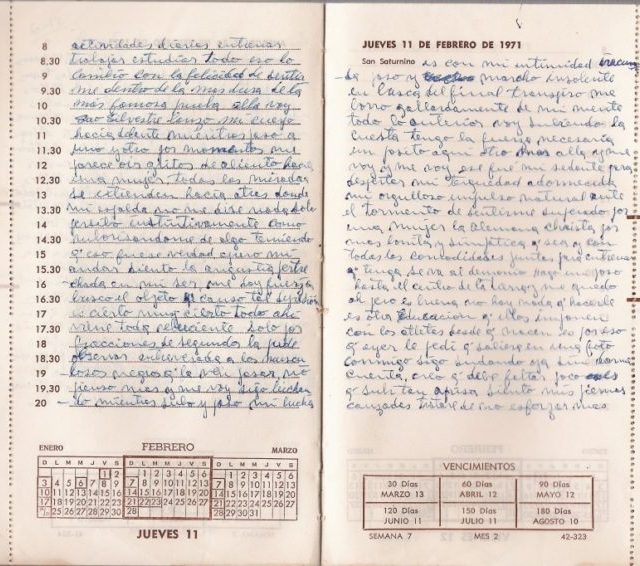 8 actividades diarias entrenar
8.30 trabajar estudiar todo eso lo
9 cambio con la felicidad de sentir
9.30 me dentro de la mas dura de la
10 mas famosa prueba alla voy
10.30 San Silvestre lanzo mi cuerpo
11 hacia delante mientras paso a
11.30 uno y otro por momentos me
12 parece oir gritos de aliento hacia
12.30 una mujer todas las miradas
13 se extienden hacia atras donde
13.30 mi espalda no me dice nada solo
14 instintivamente como
14.30 de algo temiendo
15 q' eso fuese verdad apuro mi
15.30 andar siento la angustia
16 en mi ser, me doy fuerza
16.30 busco el objeto q' causo tal
17 es cierto muy cierto todo ahi
17.30 viene toda solo por
18 fracciones de segundos la pude
18.30 observar a los
19 negros q' la ven pasar no
19.30 pienso mas q' me voy sigo luchan
20 - do mientras subo y paso mi lucha
ENERO FEBRERO MARZO
D L M M J V S D L M M J V S D L M M J V S
1 2 1 2 3 4 5 6 1 2 3 4 5 6
3 4 5 6 7 8 9 7 8 9 10 11 12 13 7 8 9 10 11 12 13
10 11 12 13 14 15 16 14 15 16 17 18 19 20 14 15 16 17 18 19 20
17 18 19 20 21 22 23 21 22 23 24 25 26 27 21 22 23 24 25 26 27
25 26 27 28 29 30 28 28 29 30 31
JUEVES 11
JUEVES 11 DE FEBRERO DE 1971
San Saturnino es con mi intimidad
la paso y marcho insolente
en busca del final transpiro me
borro gallardamente de mi mente
todo lo anterior voy subiendo la
cuesta tengo la fuerza necesaria
un pasito aqui otro mas alla q' me
voy q' me voy, ese fue mi sedante para
despertar mi terquedad adormecida
mi orgulloso impulso natural ante
el tormento de sentirme superado por
una mujer la Alemana chaita por
mas bonita y simpatica q' sea y con
todas las comodidades juntas para entrenar
q' tenga se va al demonio hago un paso
hasta el centro de la largo me quedo
ah pero es buena no hay nada q' hacerle
es otra Educacion q' ellos imponen
con los atletas desde q' nacen es por eso
q' ayer le pedi q' saliera en una foto
conmigo sigo sudando ya sin darme
cuenta, creo q' debe faltar poco
q' subi tan aprisa siento mis piernas
cansadas trataré de no esforzar mas
VENCIMIENTOS
30 Días 60 Días 90 Días
MARZO 13 ABRIL 12 MAYO 12
120 Días 150 Días 180 Días
JUNIO 11 JULIO 11 AGOSTO 10
SEMANA 7 MES 2 42-323